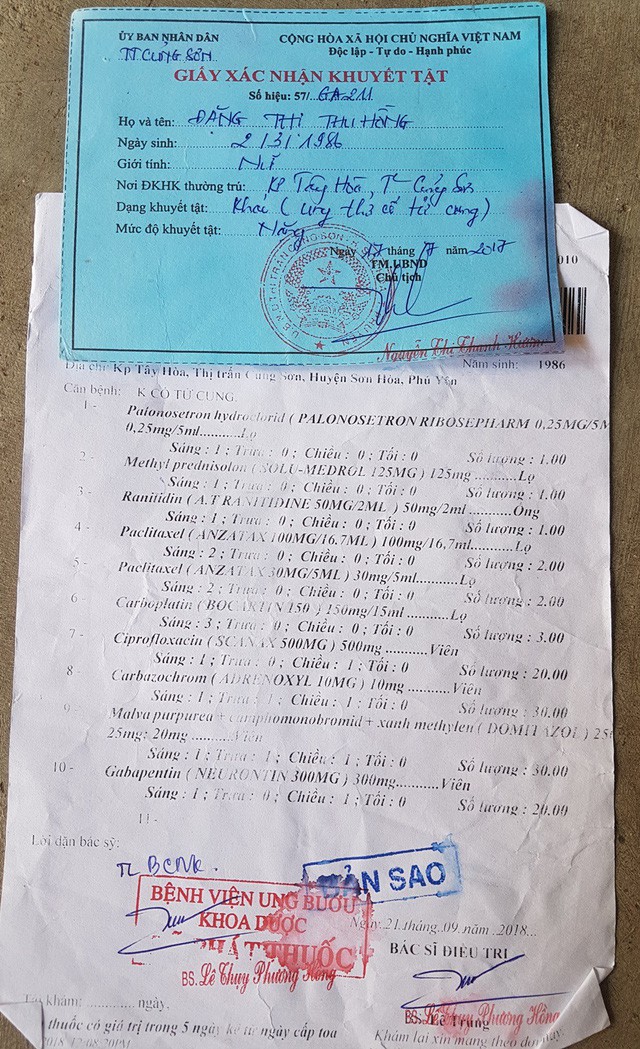 ỦY BAN NHÂN DÂN
TT CỦNG SƠN
CỘNG HÒA XÃ HỘI CHỦ NGHĨA VIỆT NAM
Độc lập - Tự do - Hạnh phúc
GIẤY XÁC NHẬN KHUYẾT TẬT
Số hiệu: 57/
Họ và tên: ĐẶNG THỊ THU HỒNG
Ngày sinh: 2/3/1986
Giới tính: Nữ
Nơi ĐKHK thường trú: KP Tây Hòa, TT Củng Sơn
Dạng khuyết tật: Khác (ung thư cổ tử cung)
Mức độ khuyết tật: Nặng
Ngày 27 tháng 7 năm 2017
TM.UBND
Chủ tịch
Nguyễn Thị Thanh Hương
010
Địa chỉ: Kp Tây Hòa, Thị trấn Củng Sơn, Huyện Sơn Hòa, Phú Yên
Năm sinh: 1986
Căn bệnh: K CỔ TỬ CUNG.
1 - Palonosetron hydroclorid ( PALONOSETRON RIBOSEPHARM 0,25MG/5M
0,25mg/5ml...........Lọ
Sáng : 1 ; Trưa : 0 ; Chiều : 0 ; Tối : 0 Số lượng : 1.00
2 - Methyl prednisolon ( SOLU-MEDROL 125MG ) 125mg ...........Lọ
Sáng : 1 ; Trưa : 0 ; Chiều : 0 ; Tối : 0 Số lượng : 1.00
3 - Ranitidin ( A.T RANITIDINE 50MG/2ML ) 50mg/2ml ...........Ống
Sáng : 1 ; Trưa : 0 ; Chiều : 0 ; Tối : 0 Số lượng : 1.00
4 - Paclitaxel ( ANZATAX 100MG/16,7ML ) 100mg/16,7ml...........Lọ
Sáng : 2 ; Trưa : 0 ; Chiều : 0 ; Tối : 0 Số lượng : 2.00
5 - Paclitaxel ( ANZATAX 30MG/5ML ) 30mg/5ml...........Lọ
Sáng : 2 ; Trưa : 0 ; Chiều : 0 ; Tối : 0 Số lượng : 2.00
6 - Carboplatin ( BOCARTIN 150 ) 150mg/15ml ...........Lọ
Sáng : 3 ; Trưa : 0 ; Chiều : 0 ; Tối : 0 Số lượng : 3.00
7 - Ciprofloxacin ( SCANAX 500MG ) 500mg ...........Viên
Sáng : 1 ; Trưa : 0 ; Chiều : 1 ; Tối : 0 Số lượng : 20.00
8 - Carbazochrom ( ADRENOXYL 10MG ) 10mg ...........Viên
Sáng : 1 ; Trưa : 1 ; Chiều : 1 ; Tối : 0 Số lượng : 30.00
9 - Malva purpurea + camphomonobromid + xanh methylen ( DOMITAZOL ) 25
25mg; 20mg ...........Viên
Sáng : 1 ; Trưa : 1 ; Chiều : 1 ; Tối : 0 Số lượng : 30.00
10 - Gabapentin ( NEURONTIN 300MG ) 300mg...........Viên
Sáng : 1 ; Trưa : 0 ; Chiều : 1 ; Tối : 0 Số lượng : 20.00
11 -
Lời dặn bác sỹ:
BẢN SAO
BỆNH VIỆN UNG BƯỚU
KHOA DƯỢC
THUỐC
BS. Lê Thụy Phương Hồng
Ngày.21.tháng..09.năm..2018...
BÁC SĨ ĐIỀU TRỊ
BS. Lê Thụy Phương Hồng
Tái khám: ............. ngày.
thuốc có giá trị trong 5 ngày kể từ ngày cấp toa
Khám lại xin mang theo đơn này.